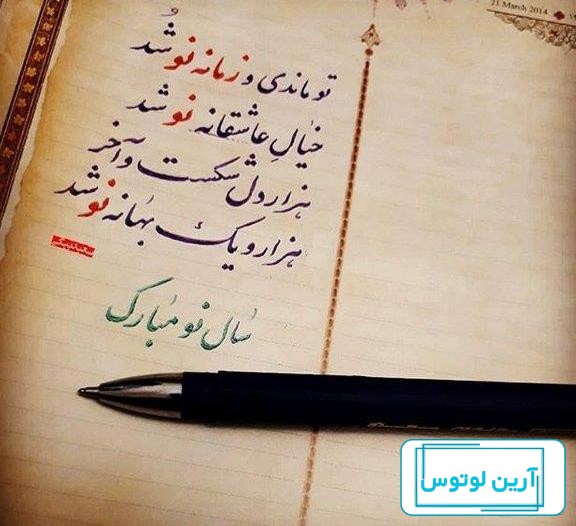 21 March 2014
تو ماندی و زمانه نو شد
خیالِ عاشقانه نو شد
هزار دل شکست و آخر
هزار و یک بهانه نو شد
سال نو مبارک
آرین لوتوس